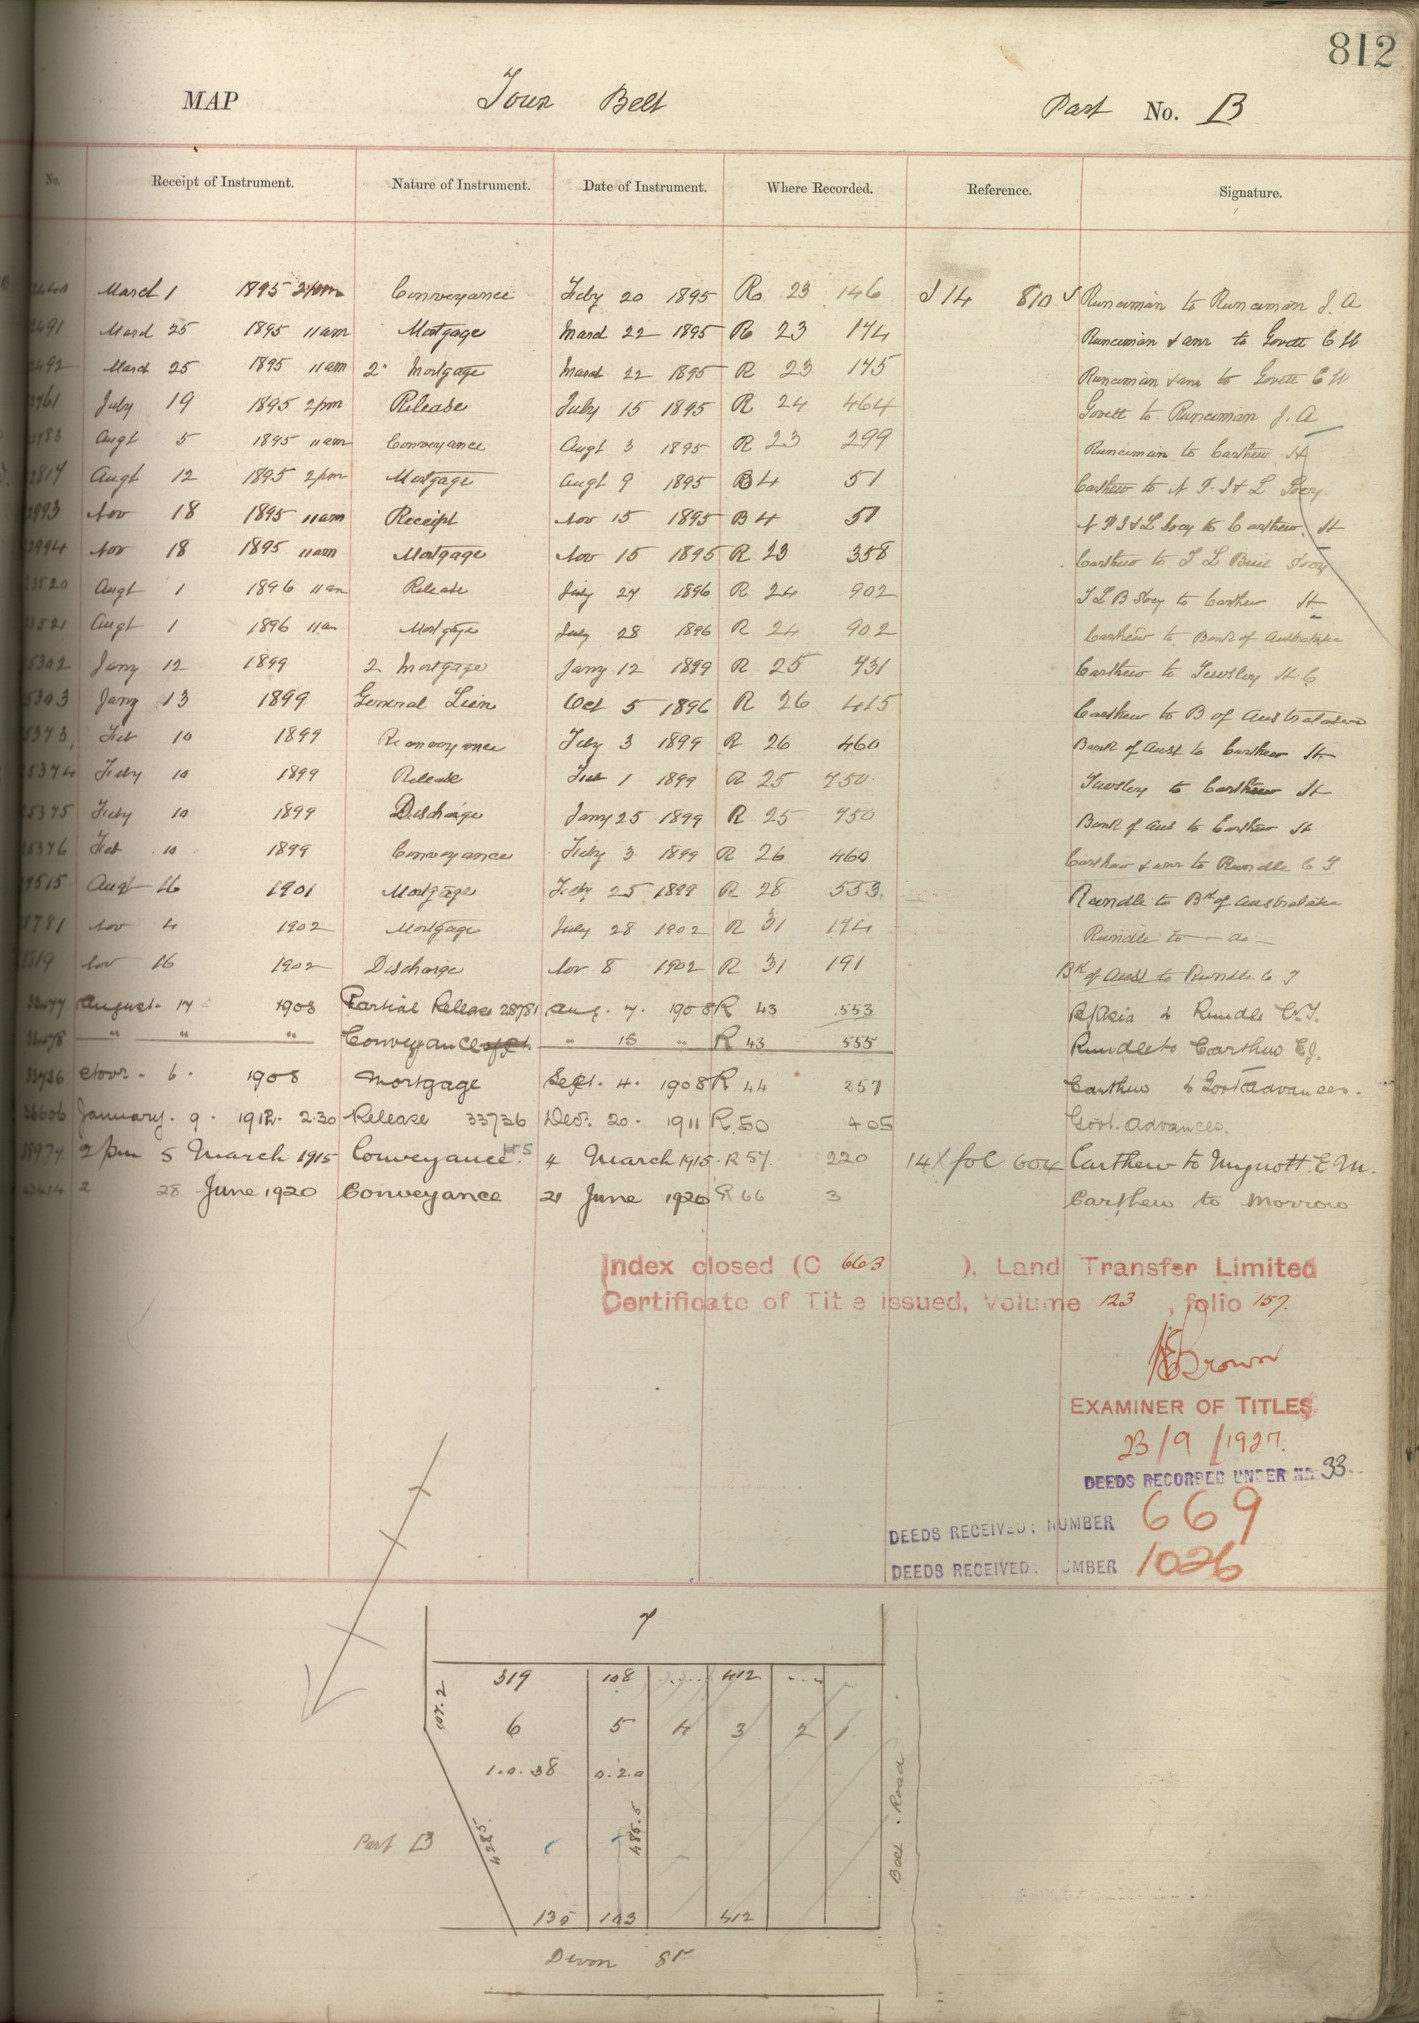 812
MAP Town Belt Part No. B
No. Receipt of Instrument. Nature of Instrument. Date of Instrument. Where Recorded. Reference. Signature.
March 1 1895 2pm Conveyance Feby 20 1895 R 23 146 J 14 810 Runciman to Runciman J. A
2491 March 25 1895 11am Mortgage March 22 1895 R 23 174 Runciman & anr to Govett C W
2492 March 25 1895 11am 2 Mortgage March 22 1895 R 23 175 Runciman & anr to Govett C W
2761 July 19 1895 2pm Release July 15 1895 R 24 464 Govett to Runciman J. A
2783 Augt 5 1895 11am Conveyance Augt 3 1895 R 23 299 Runciman to Carthew H
2817 Augt 12 1895 2pm Mortgage Augt 9 1895 B 4 51 Carthew to
2993 Nov 18 1895 11am Receipt Nov 15 1895 B 4 51 to Carthew H
2994 Nov 18 1895 11am Mortgage Nov 15 1895 R 23 358 Carthew to
23520 Augt 1 1896 11am Release July 27 1896 R 24 902 to Carthew H
23521 Augt 1 1896 11am Mortgage July 28 1896 R 24 902 Carthew to Bank of Australasia
5302 Jany 12 1899 2 Mortgage Jany 12 1899 R 25 731 Carthew to Tewsley H. C
5303 Jany 13 1899 General Lien Oct 5 1896 R 26 415 Carthew to B of Australasia
5373 Feb 10 1899 Reconveyance Feby 3 1899 R 26 460 Bank of Aust to Carthew H
5374 Feby 10 1899 Release Feb 1 1899 R 25 750 Tewsley to Carthew H
5375 Feby 10 1899 Discharge Jany 25 1899 R 25 750 Bank of Aus to Carthew H
5376 Feb 10 1899 Conveyance Feby 3 1899 R 26 460 Carthew & anr to Rundle C T
9515 Augt 16 1901 Mortgage Feby 25 1899 R 28 553 Rundle to Bk of Australasia
8781 Nov 4 1902 Mortgage July 28 1902 R 31 174 Rundle to — do —
8819 Nov 16 1902 Discharge Nov 8 1902 R 31 191 Bk of Aust to Rundle C T
33477 August 17 1908 Partial Release 28781 Aug. 7. 1908 R 43 553 B/Asia to Rundle C.T.
33478 " " " Conveyance " 15 " R 43 555 Rundle to Carthew E J.
33736 Novr. 6. 1908 Mortgage Sept. 4. 1908 R 44 257 Carthew to Govt advances.
36606 January. 9. 1912. 2.30 Release 33736 Decr. 20. 1911 R. 50 405 Govt. Advances.
38979 2 pm 5 March 1915 Conveyance. 4 March 1915. R 57. 220 14 fol 604 Carthew to Mynott. E. M.
2 28 June 1920 Conveyance 21 June 1920 R 66 3 Carthew to Morrow
Index closed (C 663 ), Land Transfer Limited
Certificate of Title issued, Volume 123, folio 157.
Brown
EXAMINER OF TITLES
23/9/1927.
DEEDS RECORDED UNDER No. 33
DEEDS RECEIVED: NUMBER 669
DEEDS RECEIVED: NUMBER 1026
7
319 108 412
107.2
6 5 4 3 2 1
1.0.38 0.2.0
Part B 428.5 485.5 Belt Road
135 103 412
Devon St